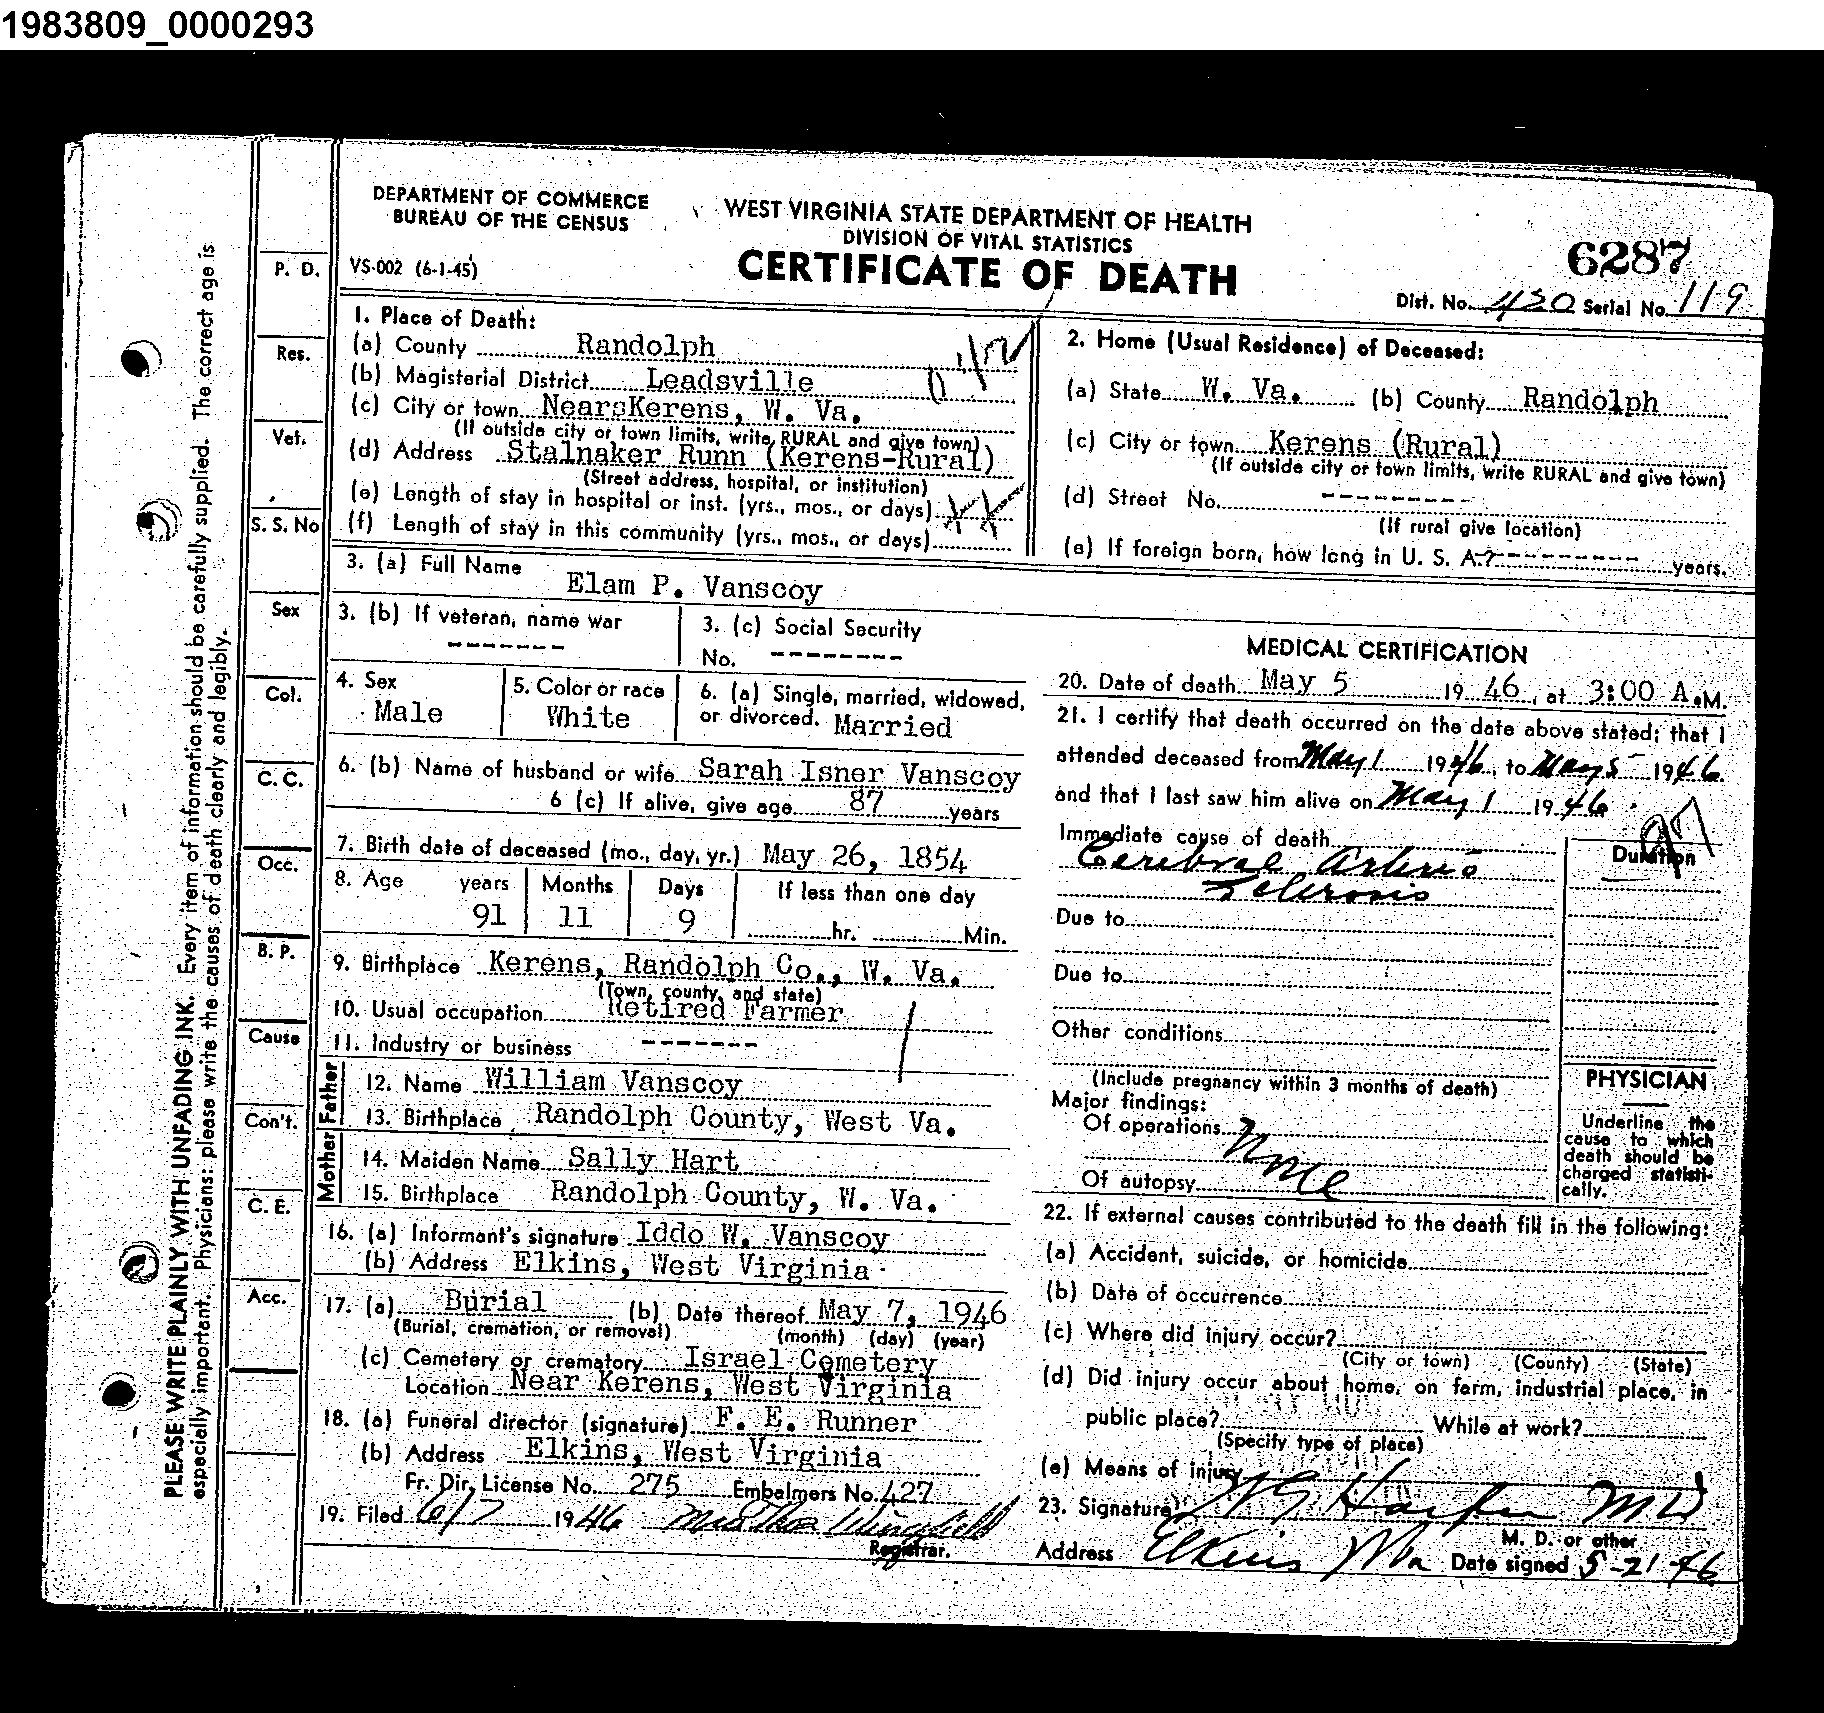 1983809_0000293
PLEASE WRITE PLAINLY WITH UNFADING INK. Every item of information should be carefully supplied. The correct age is
especially important. Physicians: please write the causes of death clearly and legibly.
P. D.
Res.
Vet.
S. S. No
Sex
Col.
C. C.
Occ.
B. P.
Cause
Con't.
C. E.
Acc.
DEPARTMENT OF COMMERCE
BUREAU OF THE CENSUS
VS-002 (6-1-45)
WEST VIRGINIA STATE DEPARTMENT OF HEALTH
DIVISION OF VITAL STATISTICS
CERTIFICATE OF DEATH
6287
Dist. No. 430 Serial No. 119
1. Place of Death:
(a) County Randolph
(b) Magisterial District Leadsville
(c) City or town NearsKerens, W. Va.
(If outside city or town limits, write RURAL and give town)
(d) Address Stalnaker Runn (Kerens-Rural)
(Street address, hospital, or institution)
(e) Length of stay in hospital or inst. (yrs., mos., or days) XX
(f) Length of stay in this community (yrs., mos., or days)
2. Home (Usual Residence) of Deceased:
(a) State W. Va. (b) County Randolph
(c) City or town Kerens (Rural)
(If outside city or town limits, write RURAL and give town)
(d) Street No. ---------
(If rural give location)
(e) If foreign born, how long in U. S. A.? ---------- years.
3. (a) Full Name Elam P. Vanscoy
3. (b) If veteran, name war
-------
3. (c) Social Security
No. --------
4. Sex
Male
5. Color or race
White
6. (a) Single, married, widowed,
or divorced. Married
6. (b) Name of husband or wife Sarah Isner Vanscoy
6 (c) If alive, give age 87 years
7. Birth date of deceased (mo., day, yr.) May 26, 1854
8. Age years Months Days If less than one day
91 11 9 hr. Min.
9. Birthplace Kerens, Randolph Co., W. Va.
(Town, county, and state)
10. Usual occupation Retired Farmer
11. Industry or business -------
Father
12. Name William Vanscoy
13. Birthplace Randolph County, West Va.
Mother
14. Maiden Name Sally Hart
15. Birthplace Randolph County, W. Va.
16. (a) Informant's signature Iddo W. Vanscoy
(b) Address Elkins, West Virginia
17. (a) Burial (b) Date thereof May 7, 1946
(Burial, cremation, or removal) (month) (day) (year)
(c) Cemetery or crematory Israel Cemetery
Location Near Kerens, West Virginia
18. (a) Funeral director (signature) F. E. Runner
(b) Address Elkins, West Virginia
Fr. Dir. License No. 275 Embalmers No. 427
19. Filed 6/7 1946 Mrs Thos Wingfield
Registrar.
MEDICAL CERTIFICATION
20. Date of death May 5 19 46, at 3:00 A.M.
21. I certify that death occurred on the date above stated; that I
attended deceased from May 1 1946, to May 5 1946.
and that I last saw him alive on May 1 1946.
Immediate cause of death
Cerebral Arterio
Sclerosis
Duration
97
Due to
Due to
Other conditions
(Include pregnancy within 3 months of death)
Major findings:
Of operations None
Of autopsy
PHYSICIAN
Underline the
cause to which
death should be
charged statisti-
cally.
22. If external causes contributed to the death fill in the following:
(a) Accident, suicide, or homicide
(b) Date of occurrence
(c) Where did injury occur?
(City or town) (County) (State)
(d) Did injury occur about home, on farm, industrial place, in
public place? While at work?
(Specify type of place)
(e) Means of injury
23. Signature Harper MD
M. D. or other
Address Elkins WVa Date signed 5-21-46